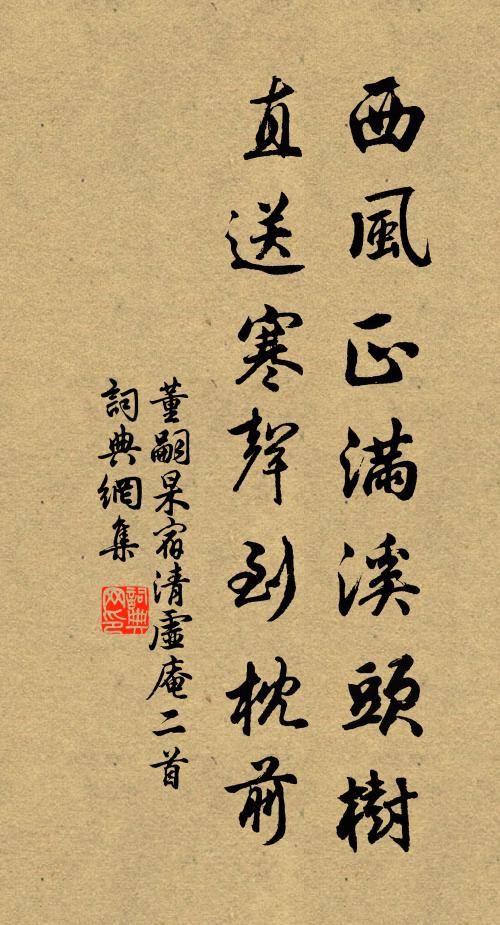 西風正滿溪頭樹
直送寒聲到枕前
董嗣杲宿清虛庵二首
詞典網集
詞典網印